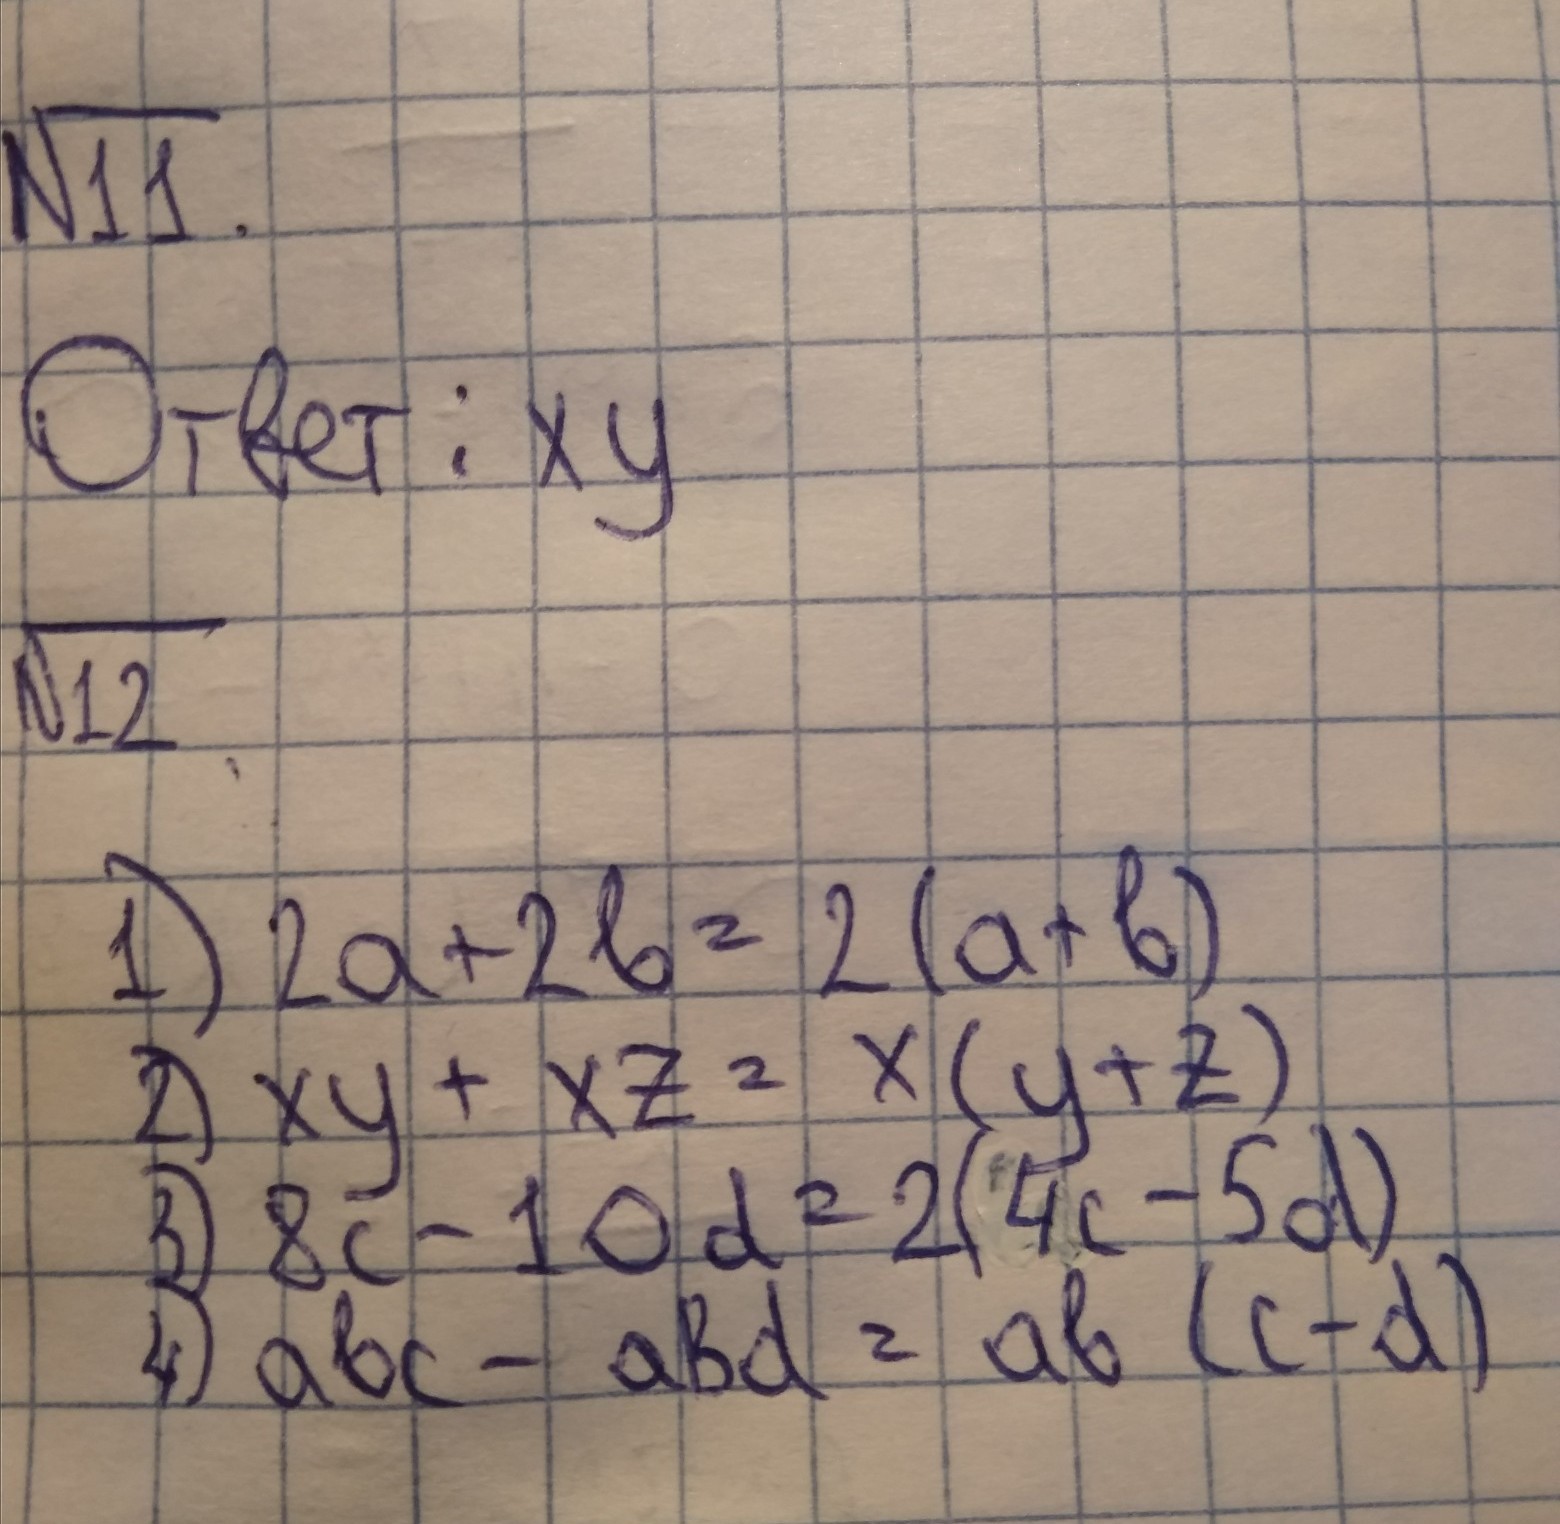 №11.
Ответ: xy
№12
1) 2a+2b=2(a+b)
2) xy+xz=x(y+z)
3) 8c-10d=2(4c-5d)
4) abc-abd=ab(c-d)